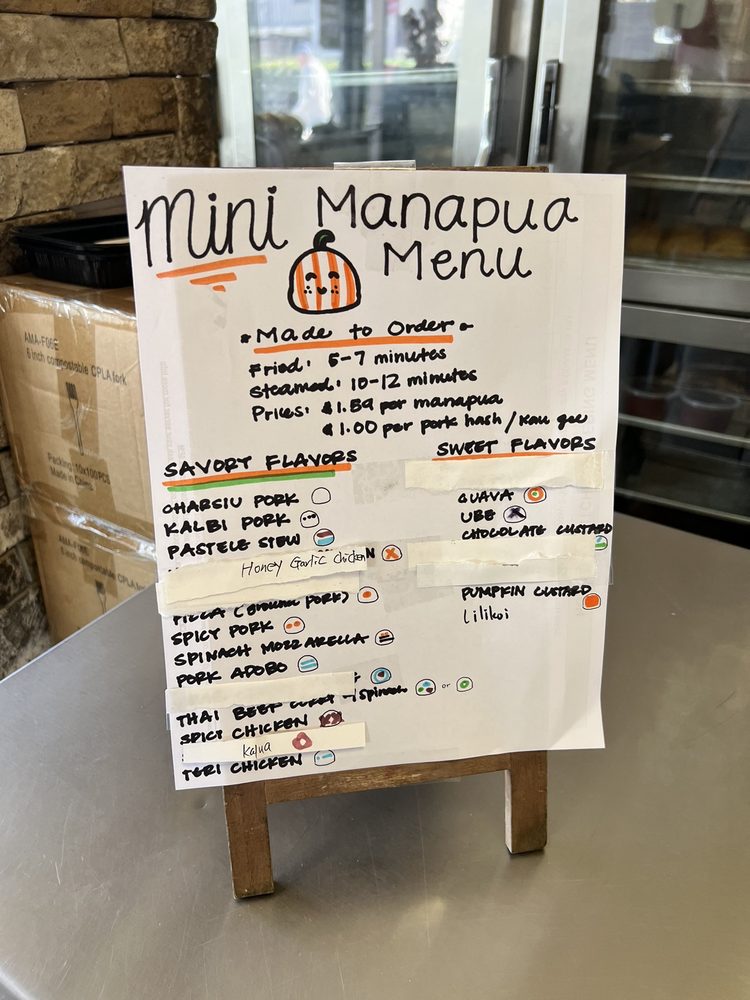 Mini Manapua
Menu
Made to Order
Fried: 5-7 minutes
Steamed: 10-12 minutes
Prices: $1.59 per manapua
$1.00 per pork hash / kau gee
SAVORY FLAVORS
CHARSIU PORK
KALBI PORK
PASTELE STEW
N
Honey Garlic Chicken
PIZZA (Ground PORK)
SPICY PORK
SPINACH MOZZARELLA
PORK ADOBO
THAI BEEF CURRY / Spinach or
SPICY CHICKEN
Kalua
TERI CHICKEN
SWEET FLAVORS
GUAVA
UBE
CHOCOLATE CUSTARD
PUMPKIN CUSTARD
Lilikoi
AMA-F06E
6 inch compostable CPLA fork
Packing: 10x100PCS
Made in China